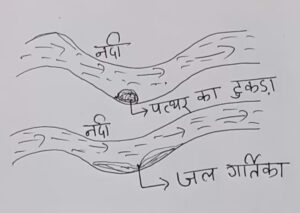 नदी
पत्थर का टुकड़ा
नदी
जल गर्तिका